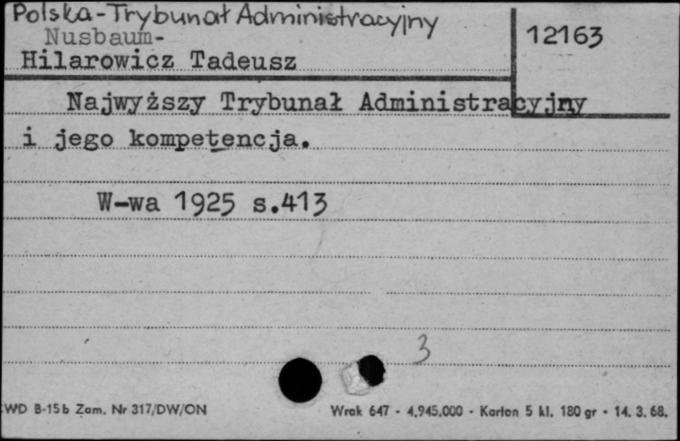 Polska-Trybunał Administracyjny
Nusbaum-
12163
Hilarowicz Tadeusz
Najwyższy Trybunał Administracyjny
i jego kompetencja.
W-wa 1925 s.413
3
WD B-15b Zam. Nr 317/DW/ON
Wrak 647 - 4.945.000 - Karton 5 kl. 180 gr - 14. 3. 68.